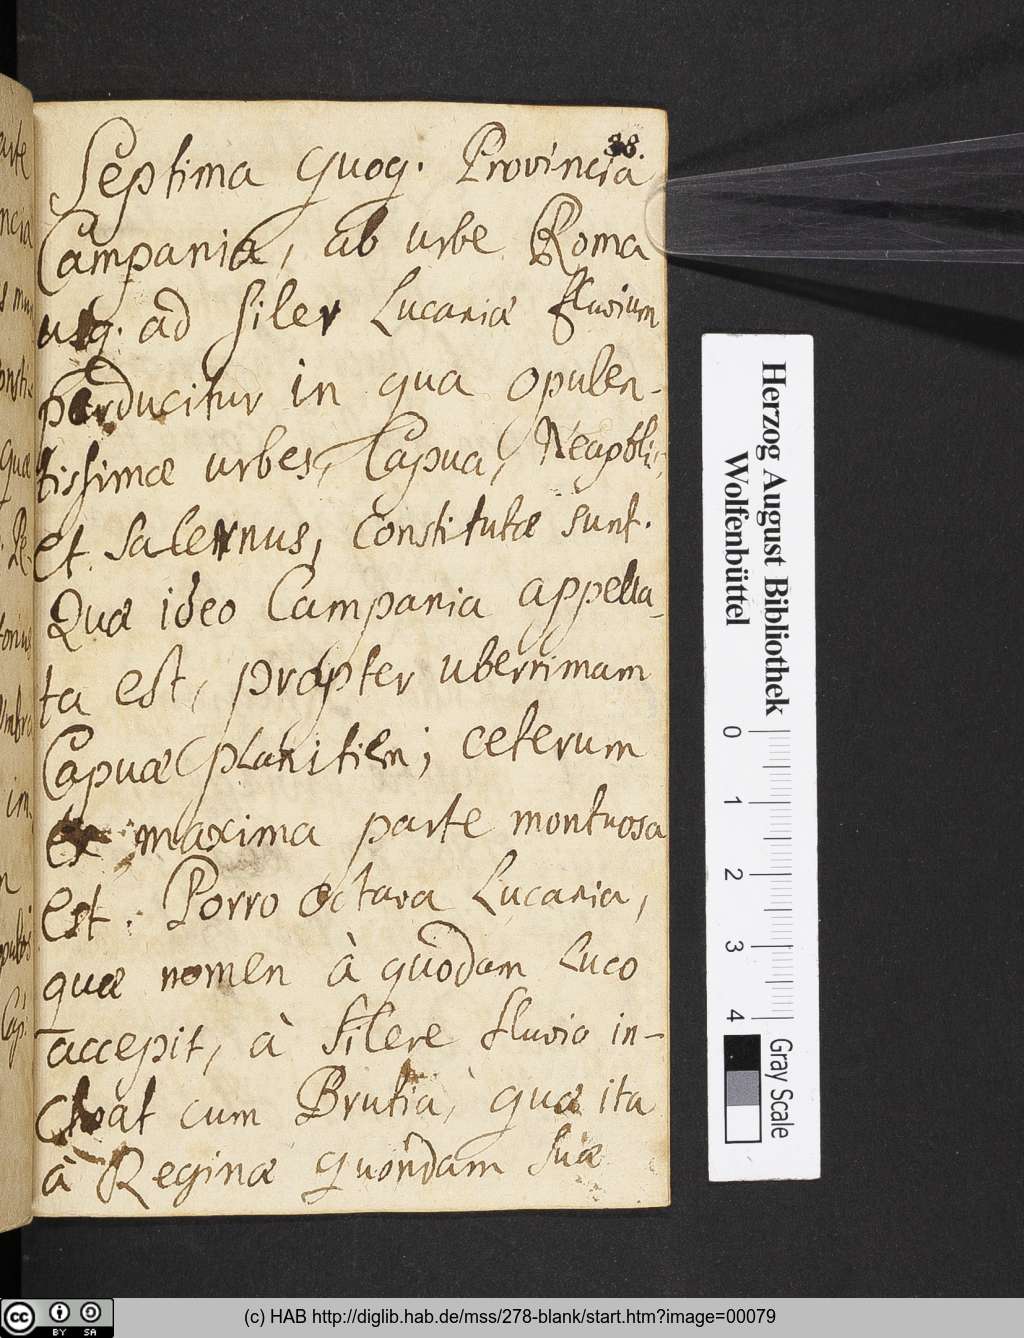 38.
Septima quoq. Provincia
Campania, ab urbe Roma
usq. ad siler Lucaniæ fluvium
perducitur in qua opulen-
tissimæ urbes, Capua, Neapolis,
et Salernus, constitutæ sunt.
Quæ ideo Campania appella-
ta est, propter uberrimam
Capuæ planitiem; ceterum
ex maxima parte montuosa
est. Porro octava Lucania,
quæ nomen à quodam Luco
accepit, à Silere fluvio in-
choat cum Brutia, quæ ita
à Reginæ quondam suæ
Herzog August Bibliothek
Wolfenbüttel
0 1 2 3 4
Gray Scale
cc BY SA
(c) HAB http://diglib.hab.de/mss/278-blank/start.htm?image=00079